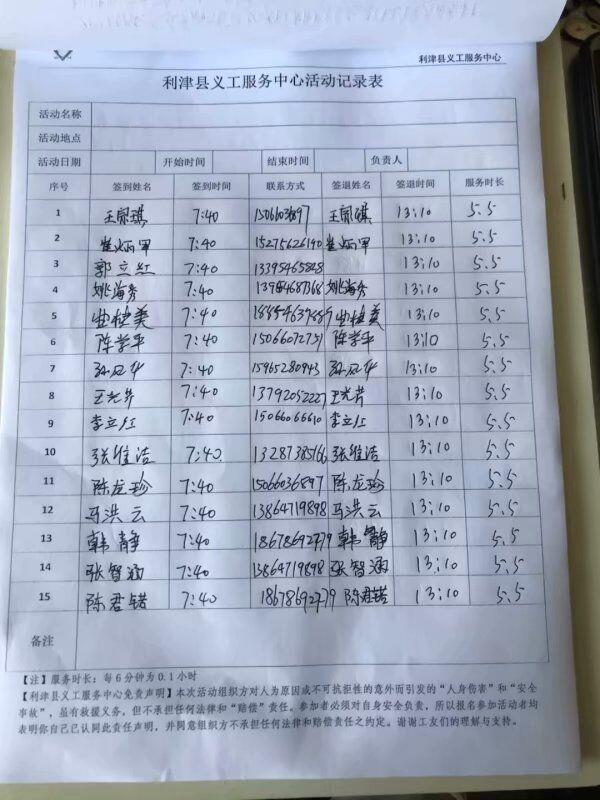 利津县义工服务中心
利津县义工服务中心活动记录表
活动名称
活动地点
活动日期 开始时间 结束时间 负责人
序号 签到姓名 签到时间 联系方式 签退姓名 签退时间 服务时长
1 7:40 13:10 5.5
2 崔炳军 7:40 15275626140 崔炳军 13:10 5.5
3 郭立红 7:40 13395465848 13:10 5.5
4 姚海秀 7:40 姚海秀 13:10 5.5
5 曲桂美 7:40 曲桂美 13:10 5.5
6 陈学平 7:40 15066072751 陈学平 13:10 5.5
7 孙凤华 7:40 15965280943 孙凤华 13:10 5.5
8 王光芹 7:40 13792052227 王光芹 13:10 5.5
9 李立红 7:40 15066066610 李立红 13:10 5.5
10 张维洁 7:40 13287385166 张维洁 13:10 5.5
11 陈龙珍 7:40 15066036897 陈龙珍 13:10 5.5
12 马洪云 7:40 13864719898 马洪云 13:10 5.5
13 韩静 7:40 18678692779 韩静 13:10 5.5
14 张智涵 7:40 13864719898 张智涵 13:10 5.5
15 陈君锘 7:40 18678692779 陈君锘 13:10 5.5
备注
【注】服务时长：每6分钟为0.1小时
【利津县义工服务中心免责声明】本次活动组织方对人为原因或不可抗拒性的意外而引发的“人身伤害”和“安全
事故”，虽有救援义务，但不承担任何法律和“赔偿”责任。参加者必须对自身安全负责，所以报名参加活动者均
表明你自己已认同此责任声明，并同意组织方不承担任何法律和赔偿责任之约定。谢谢工友们的理解与支持。